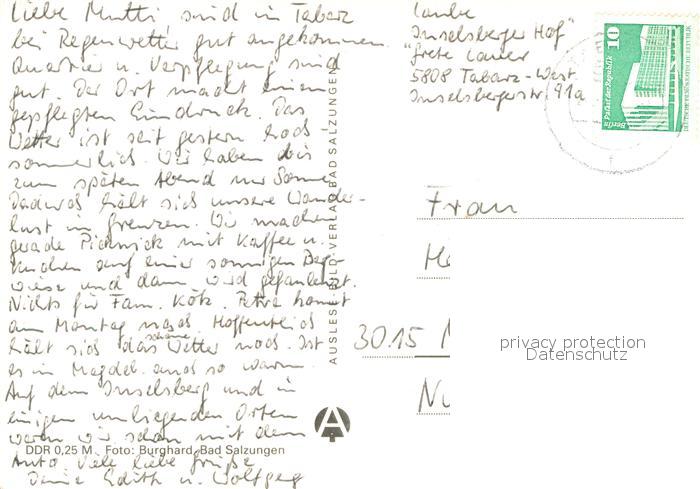 Liebe Mutti, sind in Tabarz
bei Regenwetter gut angekommen.
Quartier u. Verpflegung sind
gut. Der Ort macht einen
gepflegten Eindruck. Das
Wetter ist seit gestern hoch
sommerlich. Wir haben bis
zum späten Abend nur Sonne.
Dadurch hält sich unsere Wander-
lust in Grenzen. Wir machen
gerade Picknick mit Kaffee u.
Kuchen auf einer sonnigen Berg-
wiese und dann wird gefaulenzt.
Nichts für Fam. Kötz. Petra kommt
am Montag nach. Hoffentlich
hält sich das schöne Wetter noch. Ist
es in Magdeb. auch so warm.
Auf dem Inselsberg und in
einigen umliegenden Orten
waren wir schon mit dem
Auto. Viele liebe Grüße
Deine Edith u. Wolfgang
DDR 0,25 M Foto: Burghard, Bad Salzungen
AUSLESE-BILD-VERLAG BAD SALZUNGEN
Laube
Inselsberger Hof"
"Grete Lauer
5808 Tabarz-West
Inselsbergerstr. 91a
10
Palast der Republik
Berlin
DEUTSCHE DEMOKRATISCHE REPUBLIK
Frau
3015
privacy protection
Datenschutz